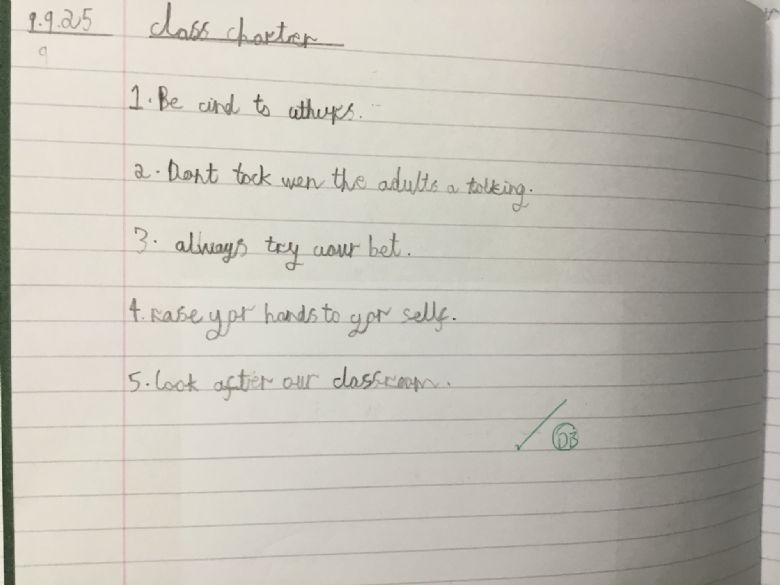 9.9.25 class charter
9
1. Be cind to uthurs.
2. Dont tock wen the adults a tolking.
3. always try uour bet.
4. Rase ypr hands to ypr sellf.
5. look after our classroom.
DB